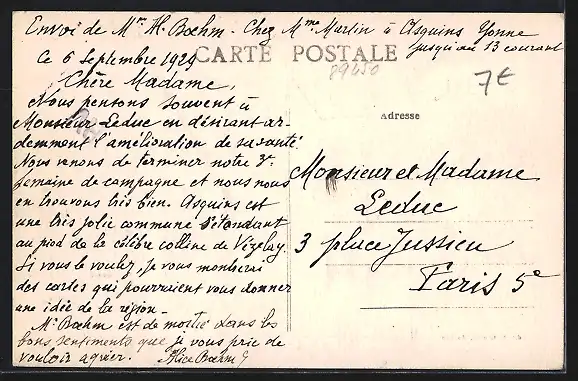 Envoi de Mme H. Bœhm. Chez Mme Martin à Asquins Yonne
jusqu'au 13 courant
Ce 6 Septembre 1929
CARTE POSTALE
89450
7€
Chère Madame,
Adresse
Nous pensons souvent à
Monsieur Leduc en désirant ar-
demment l'amélioration de sa santé.
Nous venons de terminer notre 3e
semaine de campagne et nous nous
en trouvons très bien. Asquins est
une très jolie commune s'étendant
au pied de la célèbre colline de Vézelay.
Si vous le voulez, je vous montrerai
des cartes qui pourraient vous donner
une idée de la région -
Mr Bœhm est de moitié dans les
bons sentiments que je vous prie de
vouloir agréer. Alice Bœhm
Monsieur et Madame
Leduc
3 place Jussieu
Paris 5e